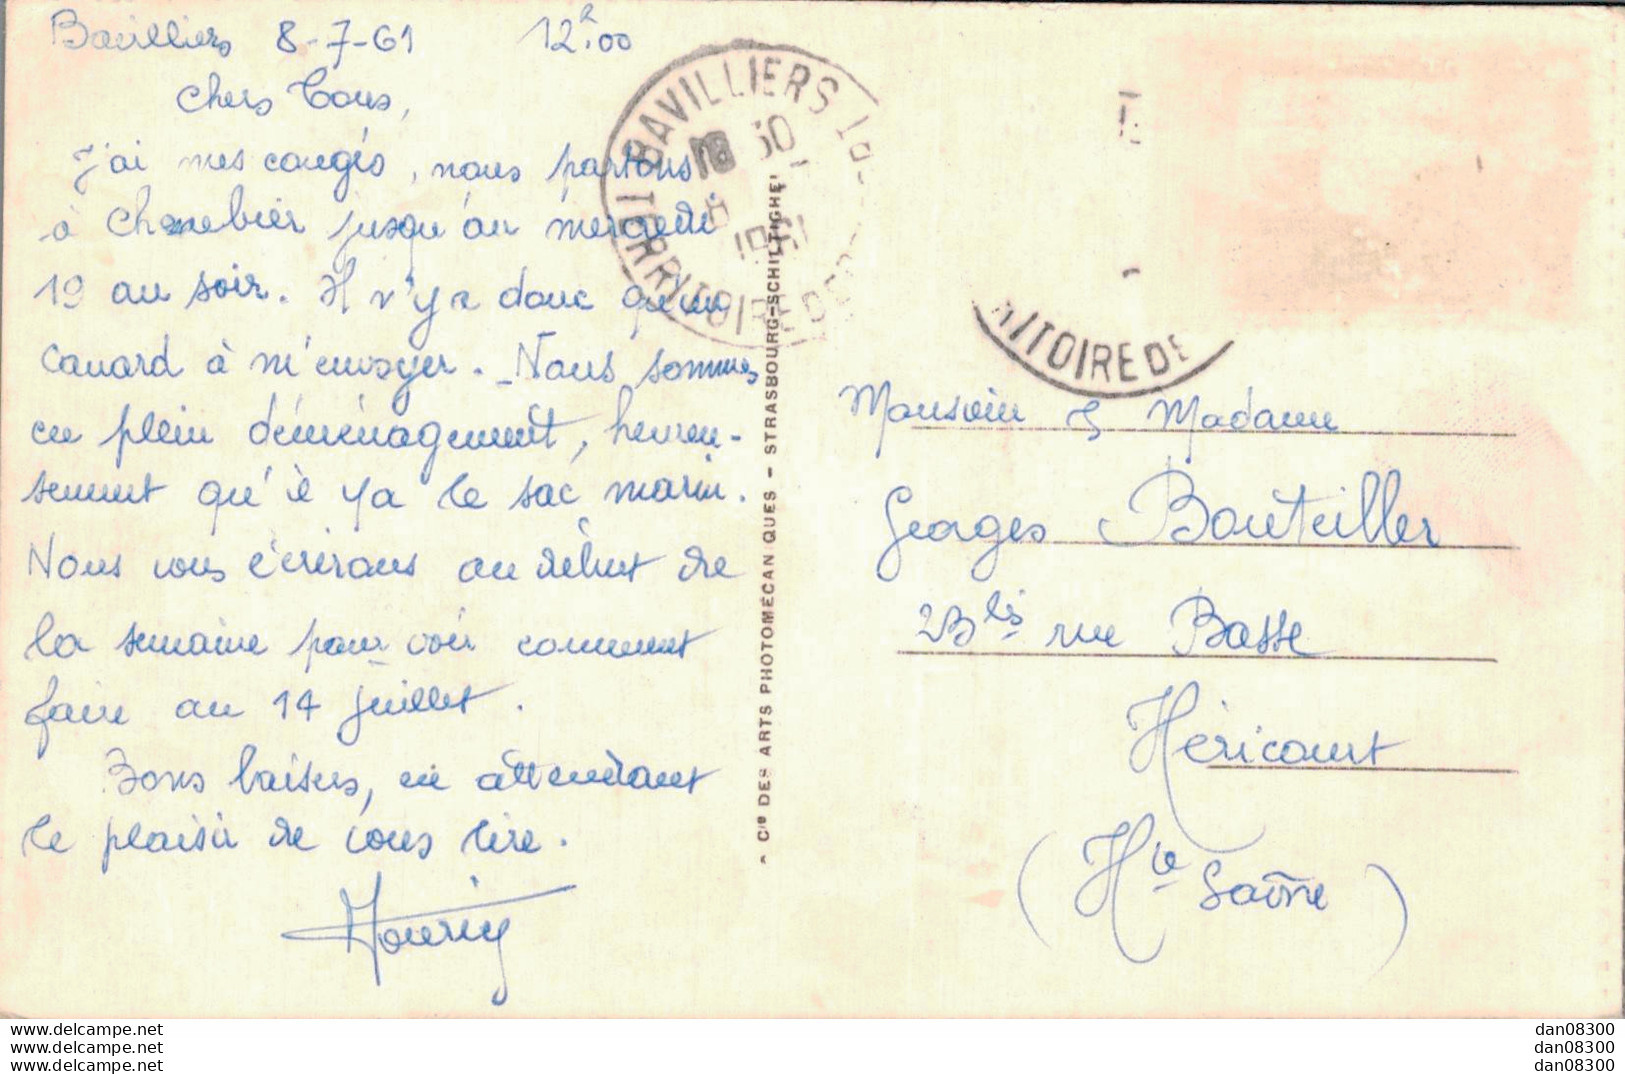 Bavilliers 8-7-61 12h00
Chers Tous,
J'ai mes congés, nous partons
à Chenebier jusqu'au mercredi
19 au soir. Il n'y a donc qu'un
canard à m'envoyer. - Nous sommes
en plein déménagement, heureu-
sement qu'il y a le sac marin.
Nous vous écrirons au début de
la semaine pour voir comment
faire au 14 juillet.
Bons baisers, en attendant
le plaisir de vous lire.
BAVILLIERS
30
1961
TERRITOIRE DE
RITOIRE DE
Cie DES ARTS PHOTOMECANIQUES - STRASBOURG-SCHILTIGHEI
Monsieur & Madame
Georges Bouteiller
23 bis rue Basse
Héricourt
(Hte Saône)
www.delcampe.net
www.delcampe.net
www.delcampe.net
dan08300
dan08300
dan08300